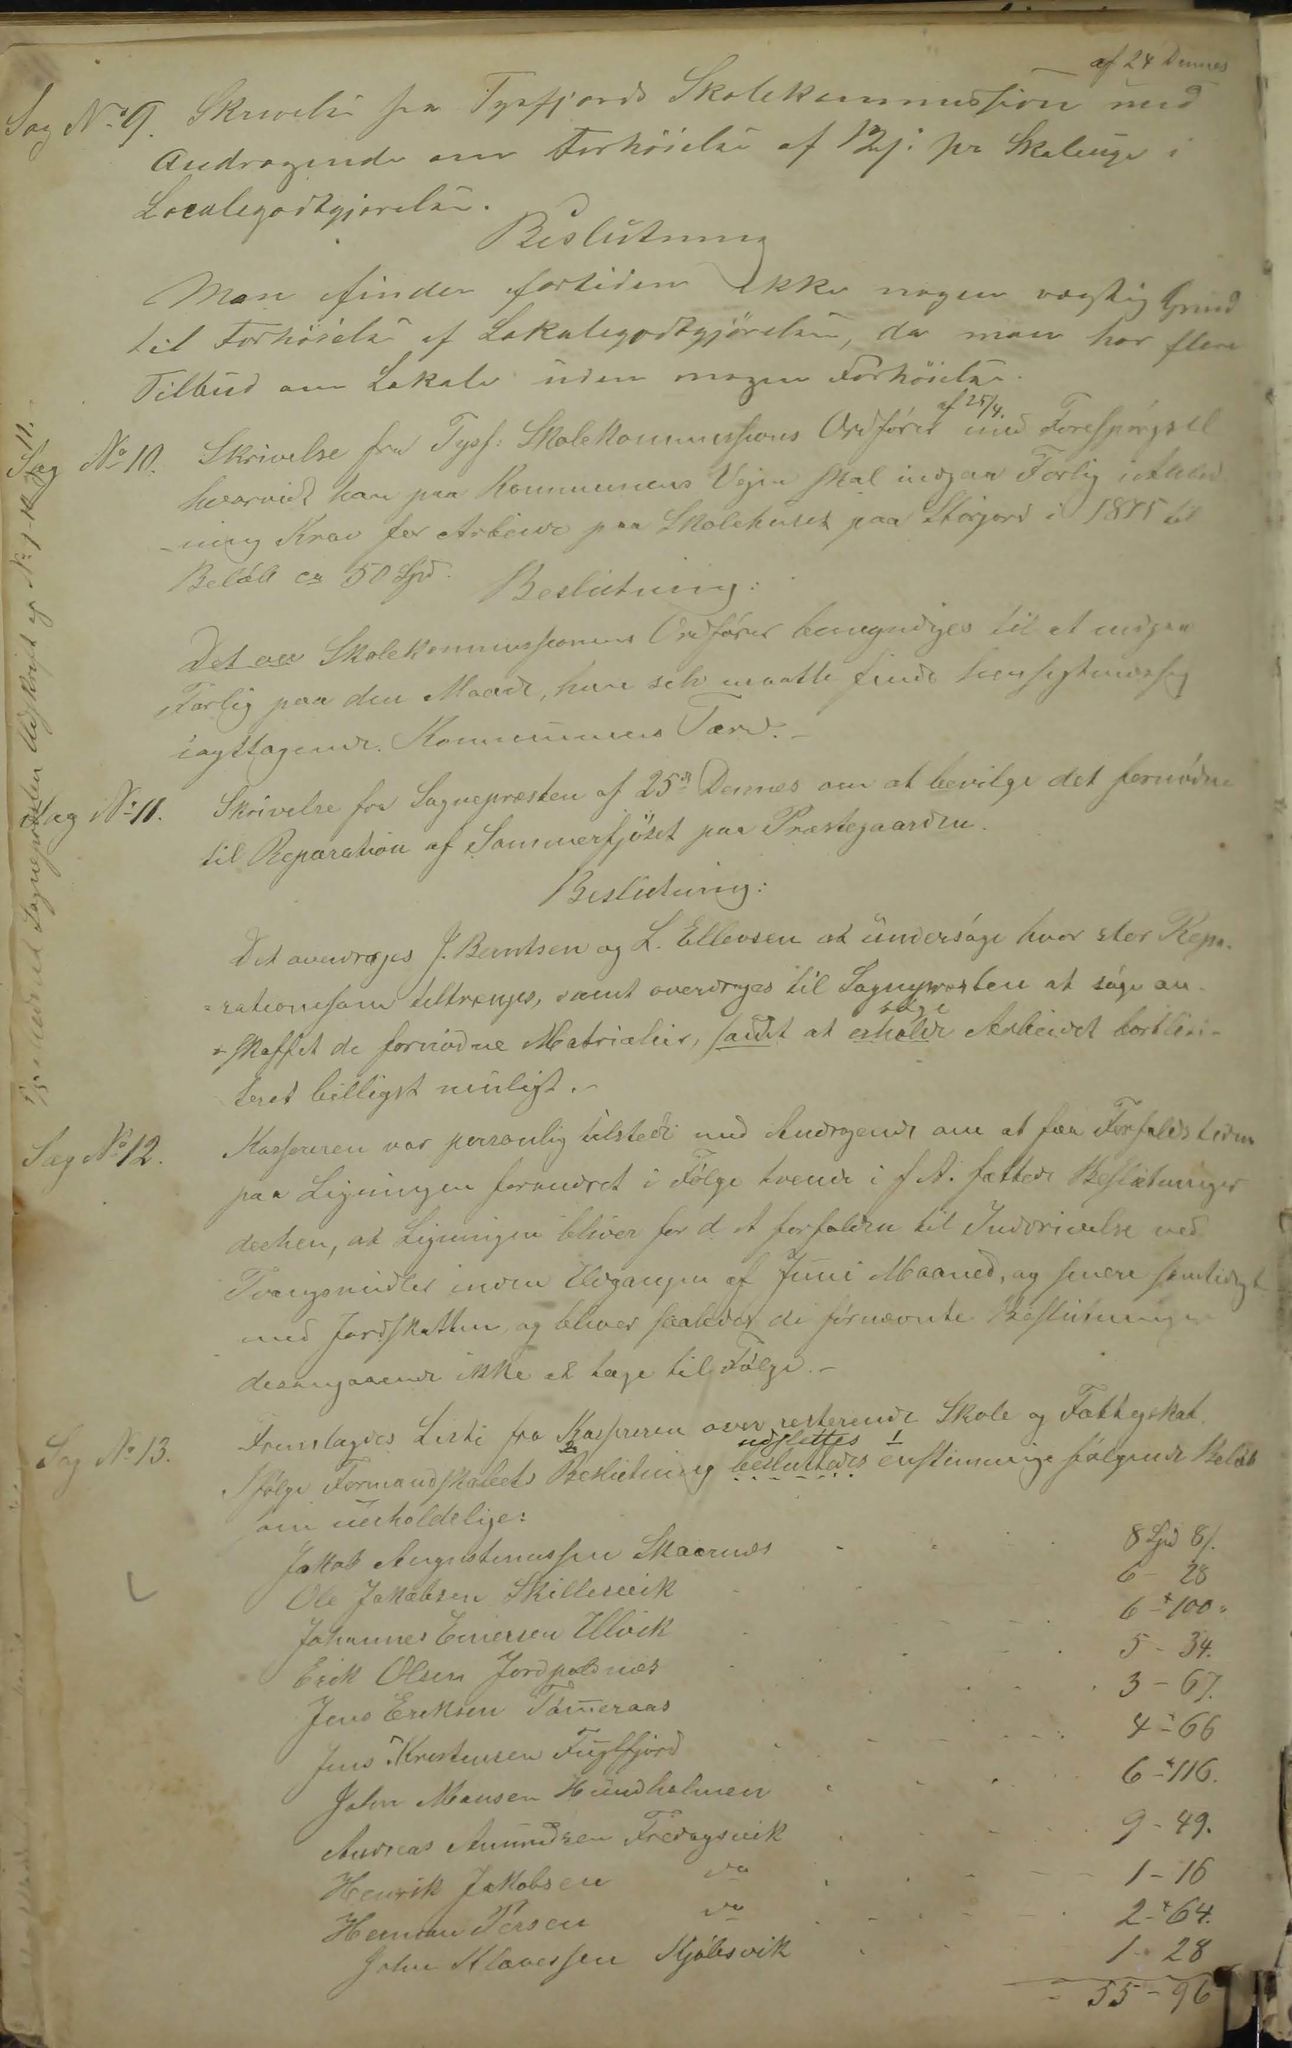 af 24 Dennes
Sag No 9. Skrivelse fra Tysfjords Skolekommission med
Andragende om Forhöielse af 12 s: pr Skoleuge i
Localegodtgjørelse.
Beslutning
Man finder fortiden ikke nogen vægtig Grund
til Forhöielse af Lokalegodtgjörelse, da man har flere
Tilbud om Lokale uden nogen Forhöielse.
af 25/4.
Sag No 10. Skrivelse fra Tysf: Skolekommissions Ordförer med Forespörgsel
hvorvidt han paa Kommunens Vegne skal indgaa Forlig
-ning Krav for Arbeide paa Skolehuset paa Storjord i 1875 til
Belöb ca 50 Spd.
Beslutning:
Det ov Skolekommissionens Ordförer bemyndiges til at indgaa
Forlig paa den Maade, han selv maatte finde hensigtmæssig
iagttagende Kommunens Tarv.-
Sag No 11. Skrivelse fra Sognepræsten af 25de Dennes om at bevilge det fornödne
til Reparation af Sommerfjöset paa Præstegaarden.
Beslutning:
Det overdrages J. Berntsen og L. Ellevsen at undersöge hvor stor Repa-
=rationsom tiltrænges, samt overdrages til Sognepræsten at söge an-
=skaffet de fornödne Matrialier, samt at erholde Arbeidet bortlici-
sølge
teret billigst muligt.-
Sag No 12. Kassereren var personlig tilstede med Andragende om at faa Forfaldstiden
paa Ligningen forandret i Fölge tvende i f A. fattede Beslutninger
derhen, at Ligningen bliver for d A forfalden til Inddrivelse ved
Tvangsmidler inden Udgangen af Juni Maaned, og senere samtidigt
med Jordskatten og bliver saaledes de förnævnte Beslutninger
desangaaende ikke at tage til Fölge.-
Sag No 13. Fremlagdes Liste fra Kassereren over resterende Skole og Fattigskat.
udslettes
Ifölge Formandskabets Beslutning besluttedes enstemmige fölgende Belöb
som uerholdelige:
Jakob Augustinussen Skaarnæs 8 Spd 8 s.
Ole Jakobsen Skillesvik 6 - 28
Johannes Einersen Ulvik 6 - 100 "
Erik Olsen Jordpoldnæs 5 - 34.
Jens Eriksen Tömmeraas 3 - 67.
Jens Kristensen Fuglfjord 4 - 66
John Monsen Hundholmen 6 - 116.
Andreas Amundsen Fredagsvik 9 - 49.
Henrik Jakobsen do 1 - 16
Herman Persen do 2 - 64.
John Klavessen Kjöbsvik 1 - 28
55 - 96